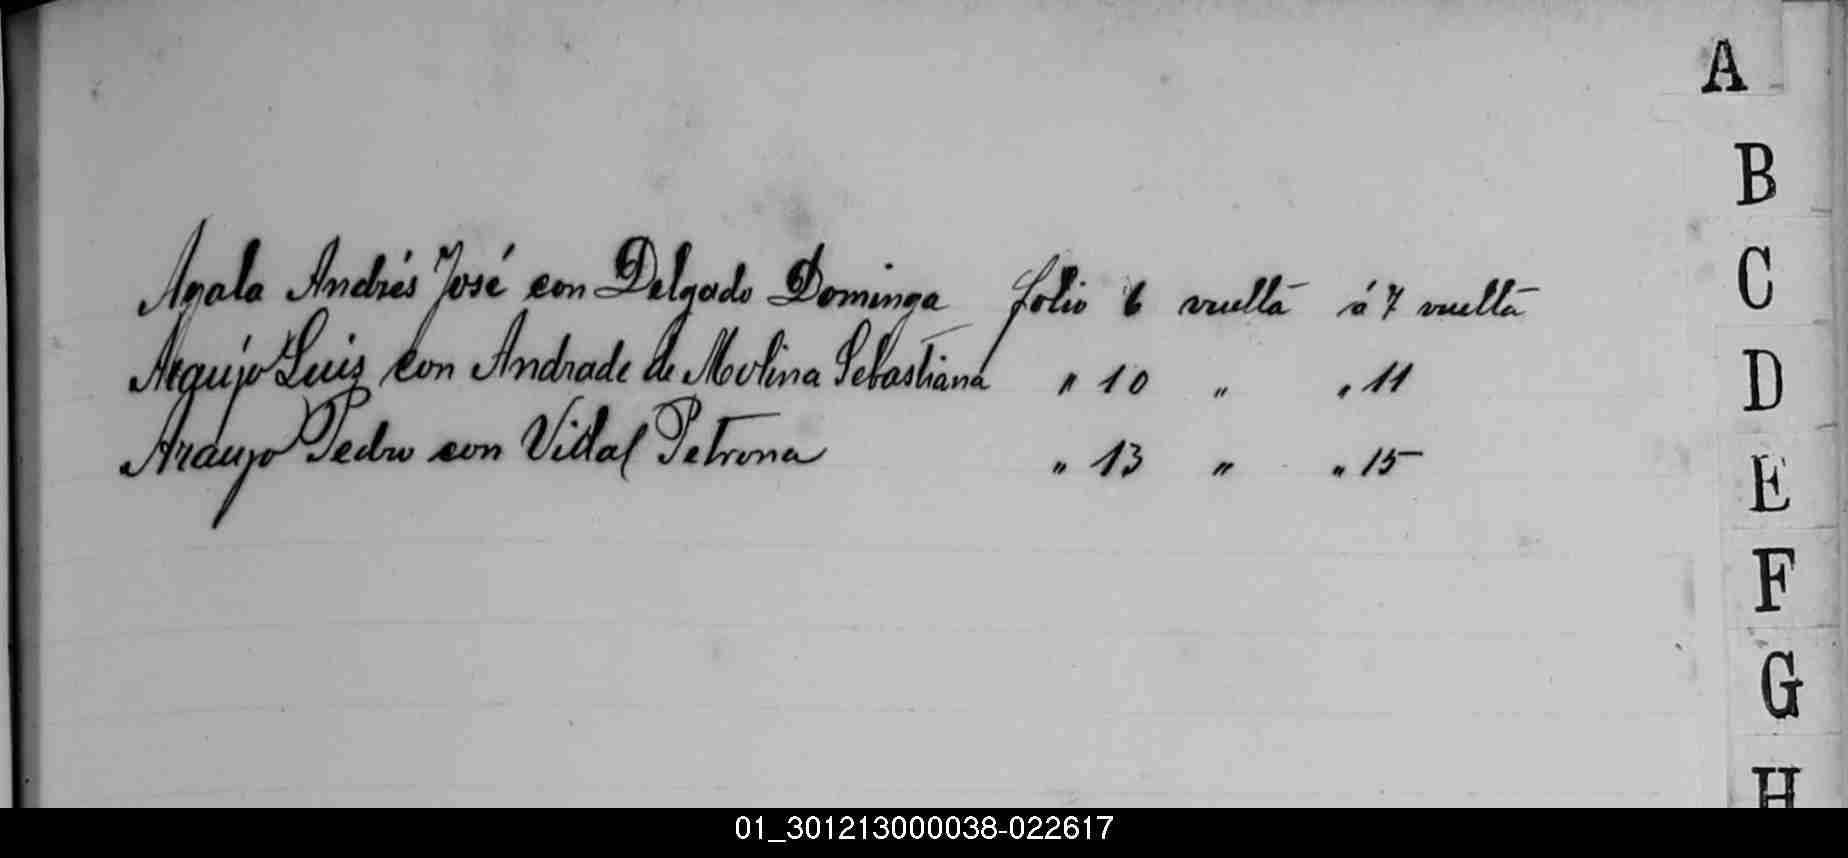 A
B
C
D
E
F
G
H
Ayala Andrés José con Delgado Dominga folio 6 vuelta á 7 vuelta
Araujo Luis con Andrade de Molina Sebastiana " 10 " " 11
Araujo Pedro con Vidal Petrona " 13 " " 15
01_301213000038-022617